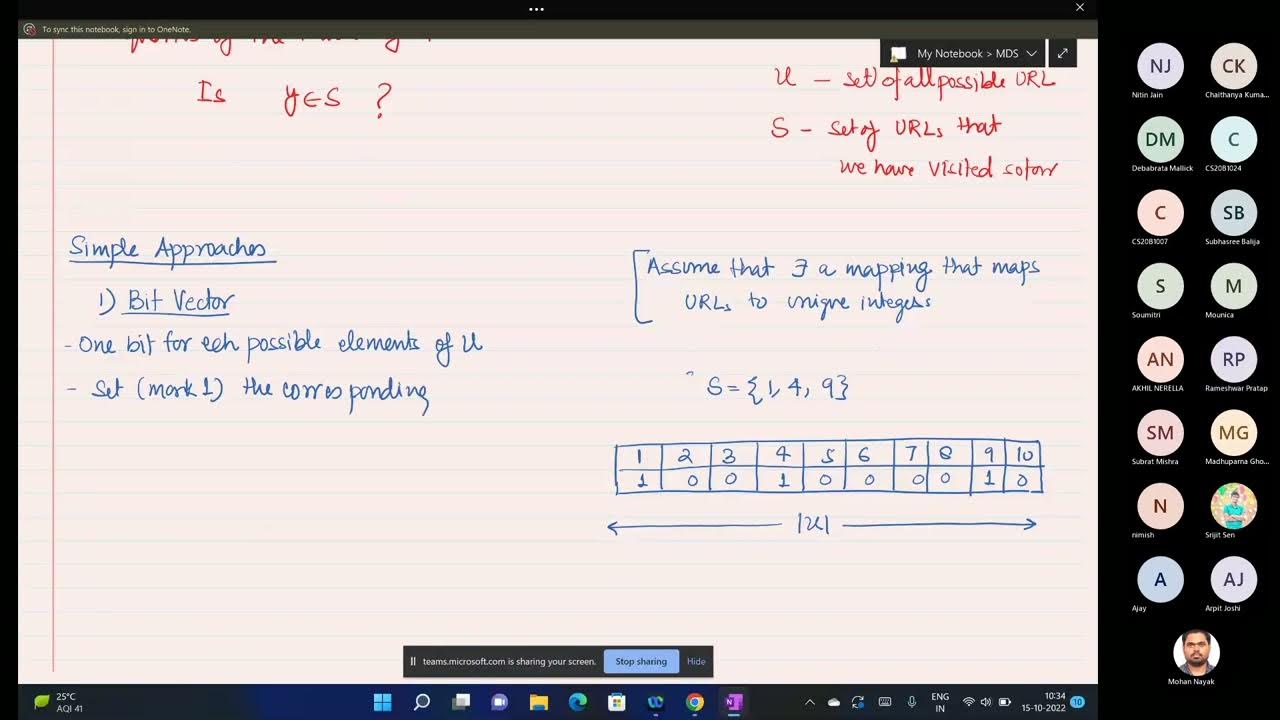 To sync this notebook, sign in to OneNote.
My Notebook > MDS
Is y∈S ?
U – set of all possible URL
S – set of URLs that
we have visited so far
Simple Approaches
1) Bit Vector
- One bit for eeh possible elements of U
- Set (mark 1) the corresponding
Assume that ∃ a mapping that maps
URLs to unique integers
S = {1, 4, 9}
1 2 3 4 5 6 7 8 9 10
1 0 0 1 0 0 0 0 1 0
|U|
teams.microsoft.com is sharing your screen. Stop sharing Hide
NJ CK
Nitin Jain Chaithanya Kuma...
DM C
Debabrata Mallick CS20B1024
C SB
CS20B1007 Subhasree Balija
S M
Soumitri Mounica
AN RP
AKHIL NERELLA Rameshwar Pratap
SM MG
Subrat Mishra Madhuparna Gho...
N
nimish Srijit Sen
A AJ
Ajay Arpit Joshi
Mohan Nayak
25°C
AQI 41
ENG
IN
10:34
15-10-2022
10